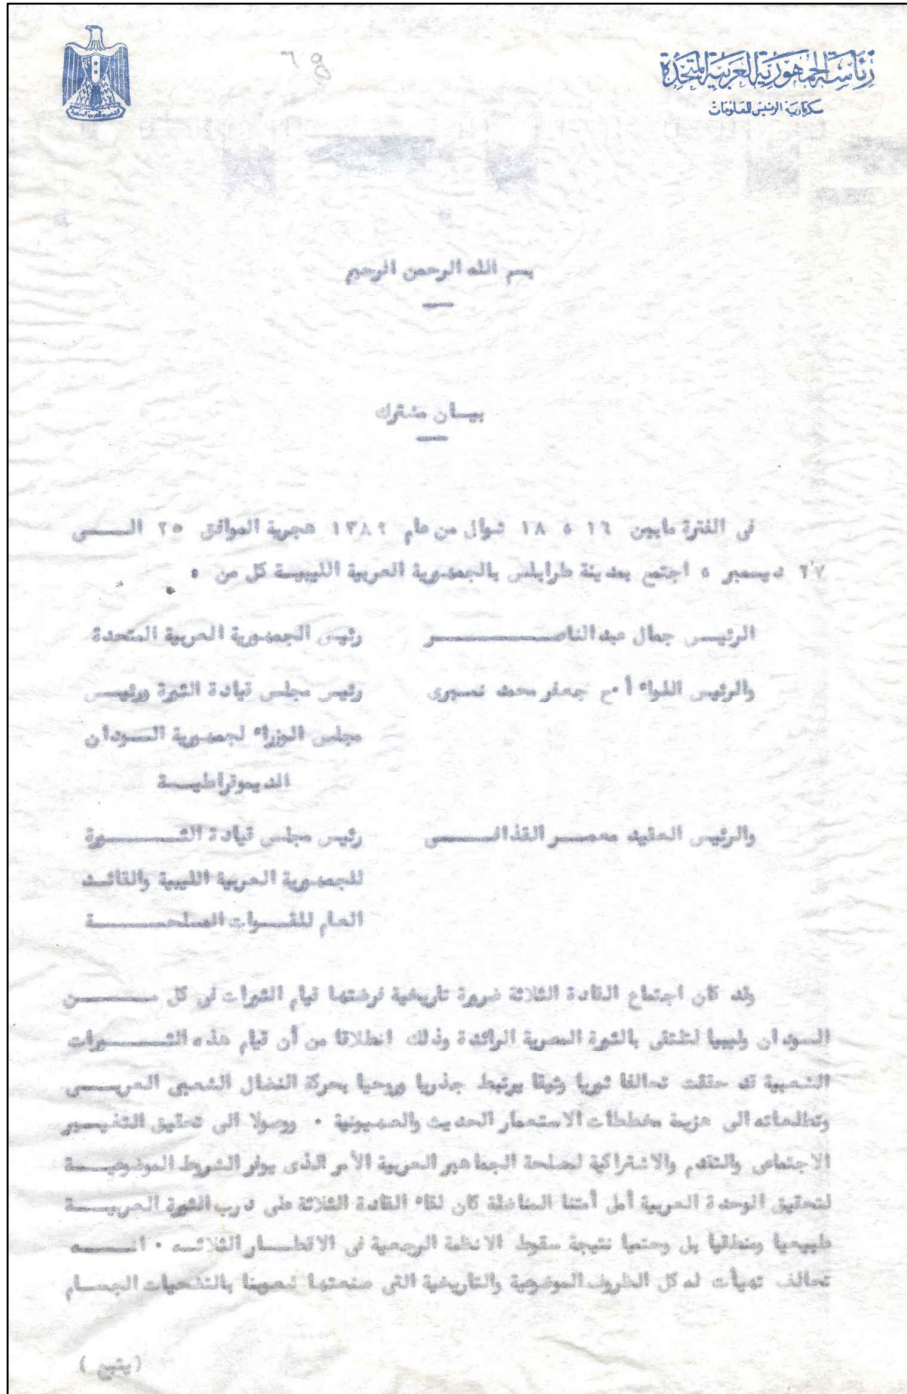 رئاسة الجمهورية العربية المتحدة
سكرتارية الرئيس للمعلومات
بسم الله الرحمن الرحيم
بيسان مشترك
فى الفترة مابين ١٦ ، ١٨ شوال من عام ١٣٨٩ هجرية الموافق ٢٥ الـــى
٢٧ ديسمبر ، اجتمع بمدينة طرابلس بالجمهورية العربية الليبيـة كل من ،
الرئيسى جمال عبد الناصـــــــر رئيس الجمهورية العربية المتحدة
والرئيس اللواء أ ٠ ح جعفر محمد نميرى رئيس مجلس قيادة الثورة ورئيــس
مجلس الوزراء لجمهورية الســودان
الديموقراطيـــة
والرئيس العقيد معمــر القذافـــى رئيس مجلس قيادة الثـــــورة
للجمهورية العربية الليبية والقائـد
العام للقــوات المسلحـــــة
وقد كان اجتماع القادة الثلاثة ضرورة تاريخية فرضتها قيام الثورات فى كل مـــــن
السودان وليبيا لتلتقى بالثورة المصرية الرائدة وذلك انطلاقا من أن قيام هذه الثــــورات
الشعبية قد حققت تحالفا ثوريا وثيقا يرتبط جذريا وروحيا بحركة النضال الشعبى العربـــى
وتطلعاته الى هزيمة مخططات الاستعمار الحديث والصهيونية ٠ ووصولا الى تحقيق التغيــير
الاجتماعى والتقدم والاشتراكية لمصلحة الجماهير العربية الأمر الذى يوفر الشروط الموضوعيــة
لتحقيق الوحدة العربية أمل أمتنا المناضلة كان لقاء القادة الثلاثة على درب الثورة العربيـــة
طبيعيا ومنطقيا بل وحتميا نتيجة سقوط الانظمة الرجعية فى الاقطــار الثلاثــه ٠ انـــه
تحالف تهيأت له كل الظروف الموضوعية والتاريخية التى صنعتها شعوبنا بالتضحيات الجسـام
( يتبع )